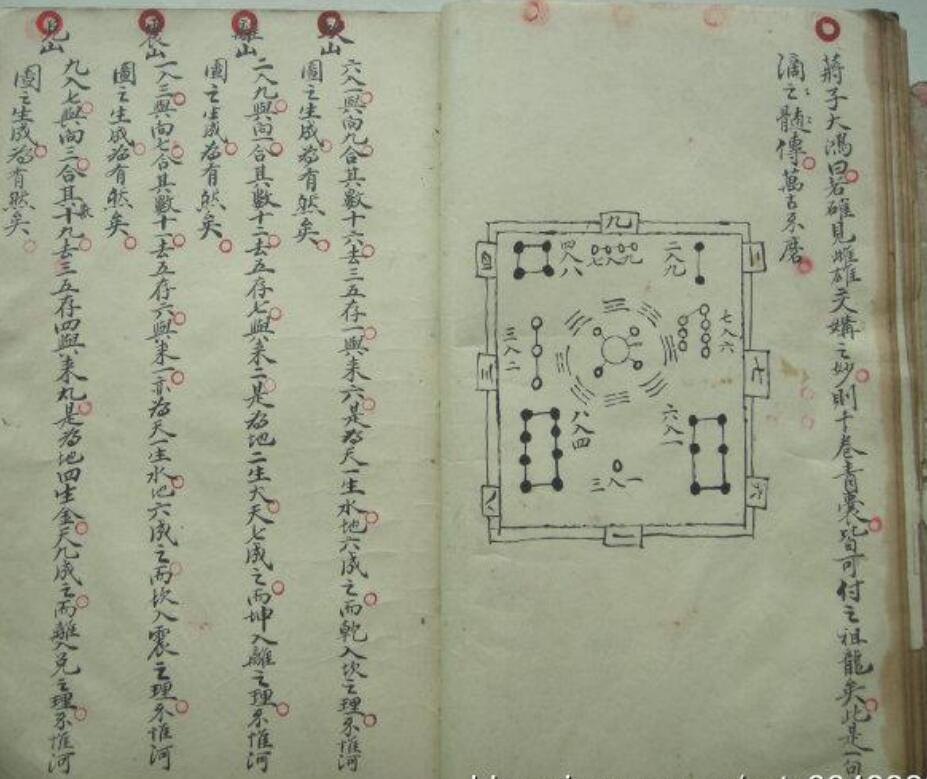 蔣子大鴻曰若確見雌雄交媾之妙則十卷青囊皆可付之祖龍矣此是一句
滴之髓傳萬古不磨
九
四
二
三
七
八
六
一
四入八
七入九
二入九
三入二
七入六
八入四
六入一
三入一
坎山
六入一與向九合其數十六去三五存一與来六是為天一生水地六成之而乾入坎之理不惟河
圖之生成為有然矣
離山
二入九與向一合其數十二去五存七與来二是為地二生火天七成之而坤入離之理不惟河
圖之生成為有然矣
震山
一入三與向七合其數十一去五存六與来一亦為天一生水地六成之而坎入震之理不惟河
圖之生成為有然矣
兌山
九入七與向三合其數十九去三五存四與来九是為地四生金天九成之而離入兌之理不惟河
圖之生成為有然矣